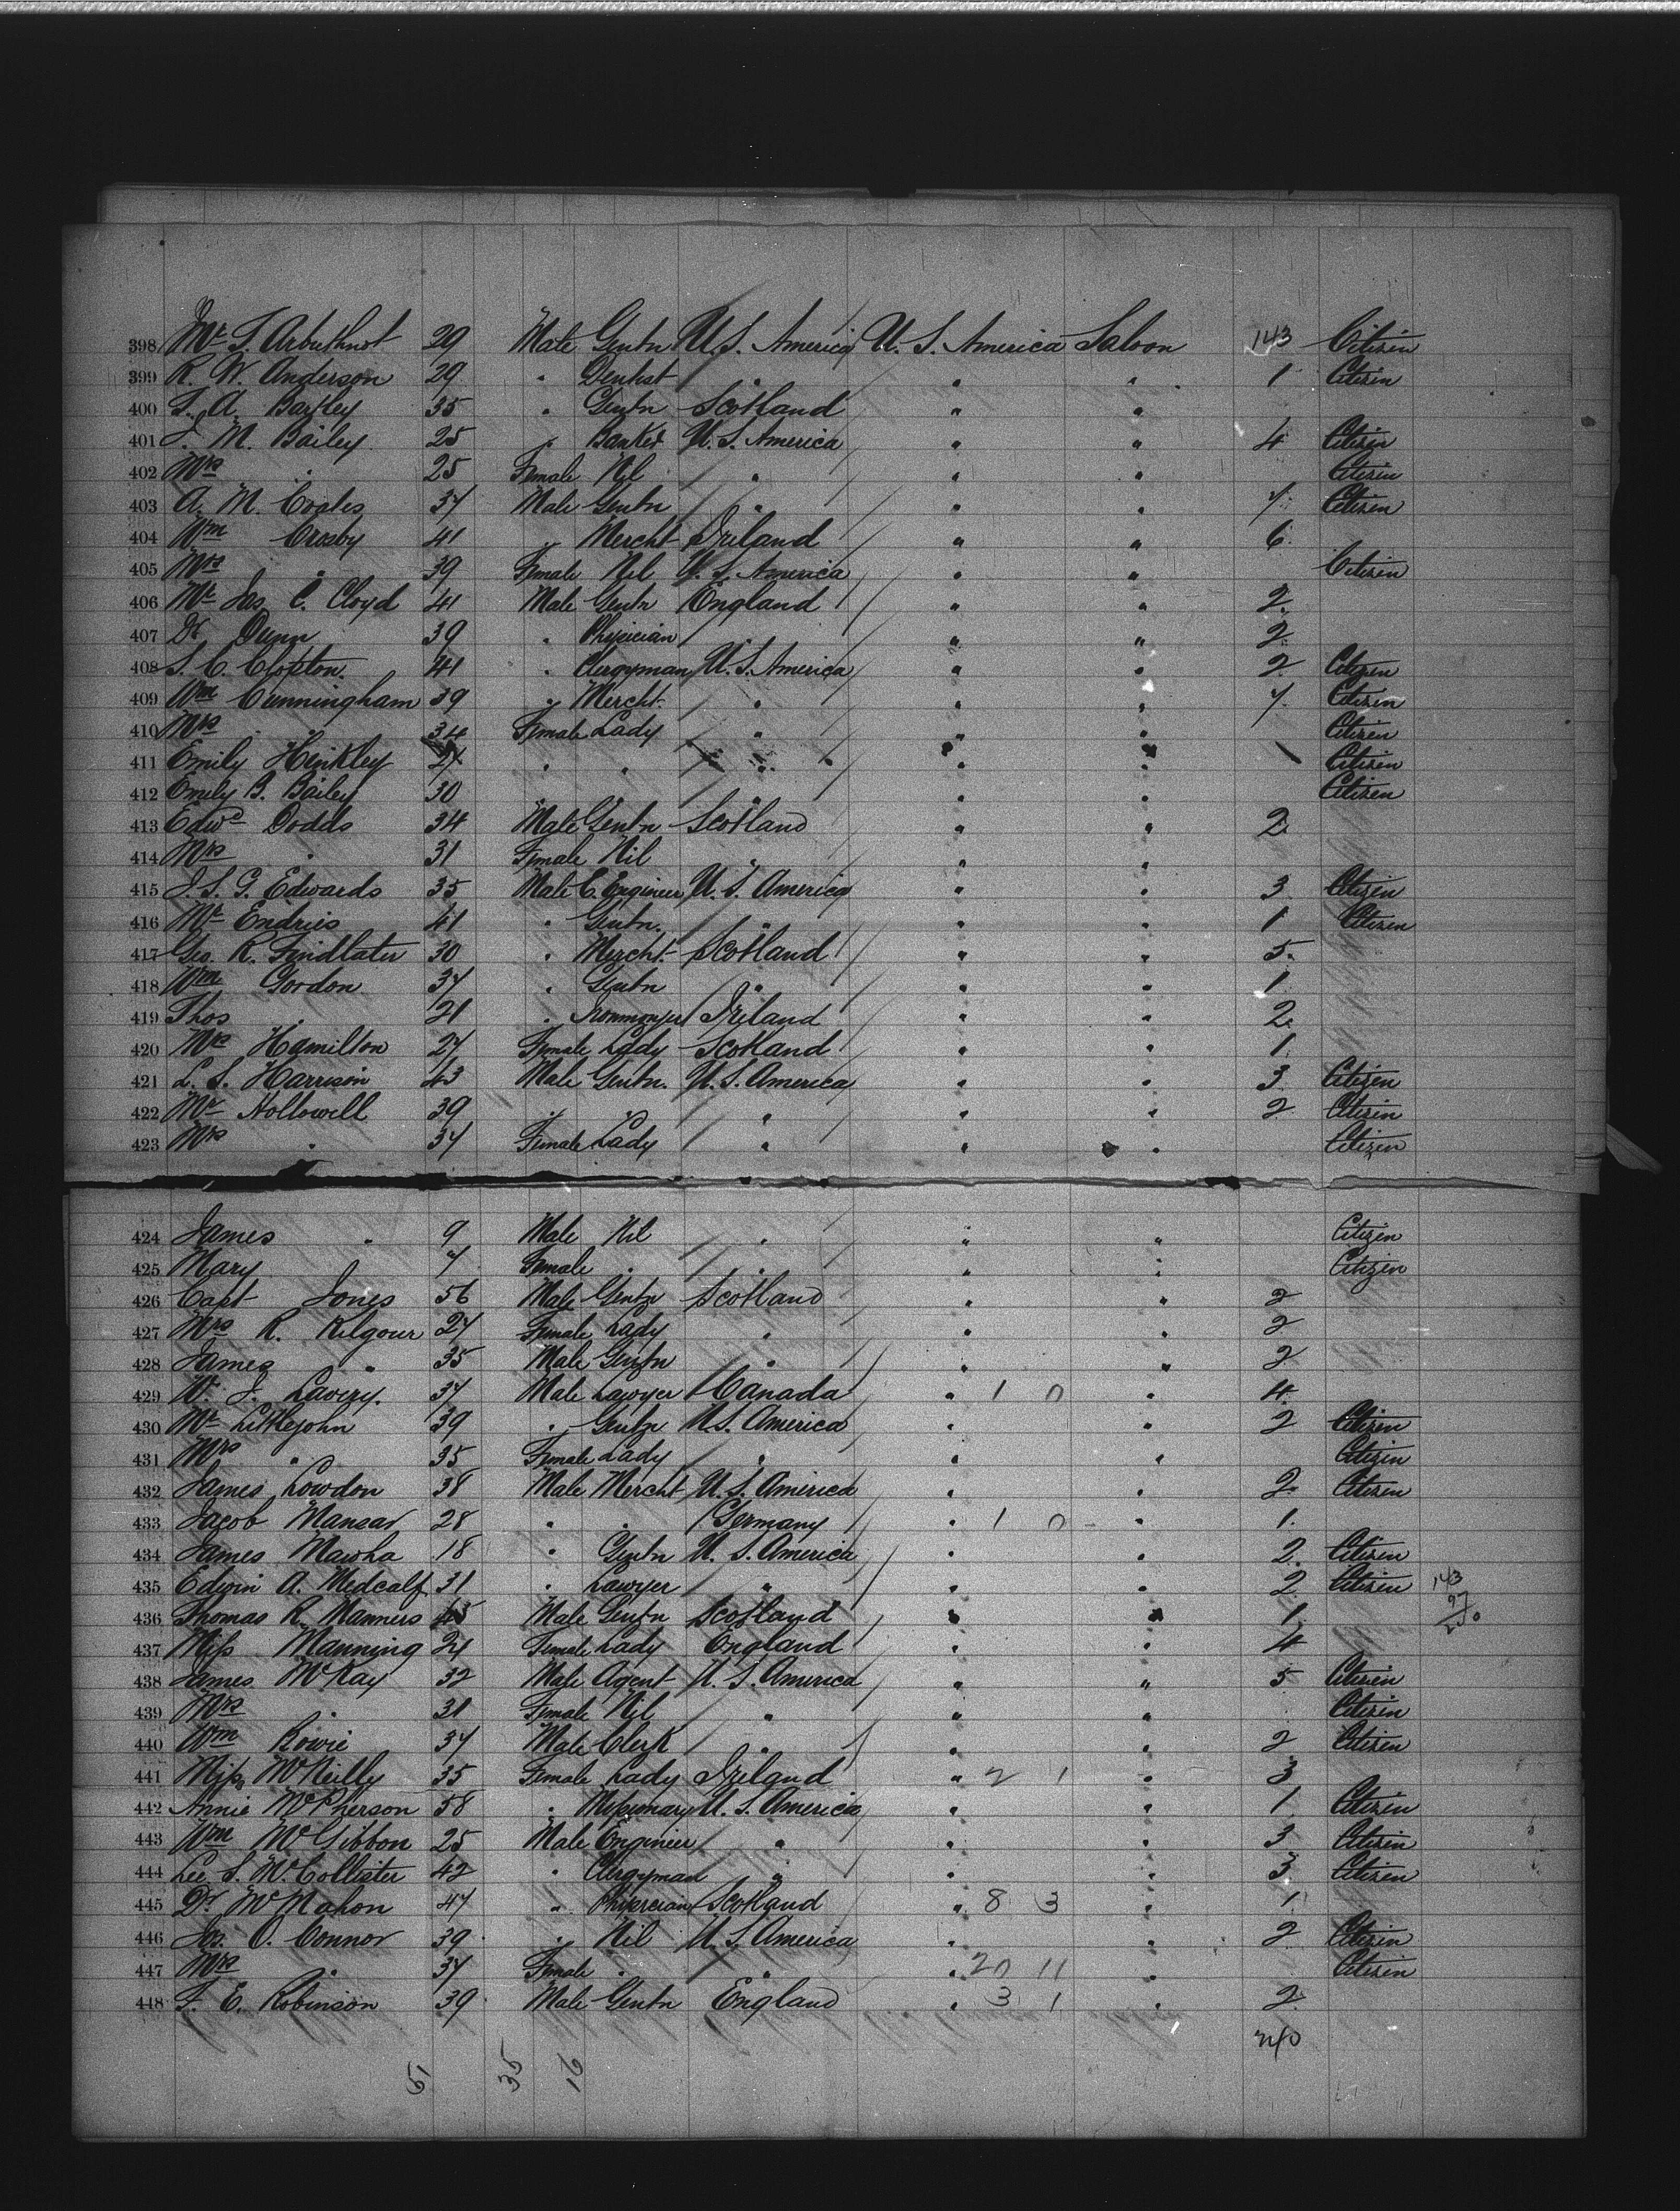 398 Mr T. Arbuthnot 29 Male Gentn U.S. America U.S. America Saloon 143 Citizen
399 R. W. Anderson 29 " Dentist " " " 1 Citizen
400 F. A. Barkley 35 " Gentn Scotland " "
401 J. M. Bailey 25 " Banker U.S. America " " 4 Citizen
402 Mrs " 25 Female Nil " " " Citizen
403 A. M. Coates 37 Male Gentn " " " 7 Citizen
404 Wm Crosby 41 " Mercht Ireland " " 6
405 Mrs " 39 Female Nil U.S. America " " Citizen
406 Mr Jas C. Cloyd 41 Male Gentn England " " 2
407 Dr Dunn 39 " Physician " " 2
408 S. C. Clopton 41 " Clergyman U.S. America " " 2 Citizen
409 Wm Cunningham 39 " Mercht " " " 7 Citizen
410 Mrs " 34 Female Lady " " " Citizen
411 Emily Hinkley 27 " " " " " Citizen
412 Emily B. Bailey 30 " " " Citizen
413 Edwd Dodds 34 Male Gentn Scotland " " 2
414 Mrs " 31 Female Nil " " "
415 J. S. G. Edwards 35 Male C. Engineer U.S. America " " 3 Citizen
416 Mr Endries 41 " Gentn " " " 1 Citizen
417 Geo. R. Findlater 30 " Mercht Scotland " " 5
418 Wm Gordon 37 " Gentn " " " 1
419 Thos " 21 " Ironmonger Ireland " " 2
420 Mrs Hamilton 27 Female Lady Scotland " " 1
421 L. S. Harrison 43 Male Gentn. U.S. America " " 3 Citizen
422 Mr Hollowell 39 " " " " " 2 Citizen
423 Mrs " 37 Female Lady " " " Citizen
424 James " 9 Male Nil " " " Citizen
425 Mary 7 Female " " " " Citizen
426 Capt Jones 56 Male Gentn Scotland " " 2
427 Mrs R. Kilgour 27 Female Lady " " " 2
428 James " 35 Male Gentn " " " 2
429 W. J. Lavery. 37 Male Lawyer Canada " 1 0 " 4
430 Mr Littlejohn 39 " Gentn U.S. America " " 2 Citizen
431 Mrs " 35 Female Lady " " " Citizen
432 James Lowdon 38 Male Mercht U.S. America " " 2 Citizen
433 Jacob Mansar 28 " " Germany " 1 0 " 1
434 James Mawha 18 " Gentn U.S. America " " 2 Citizen
435 Edwin A. Medcalf 31 " Lawyer " " " 2 Citizen 143
436 Thomas R. Manners 45 Male Gentn Scotland " " 1 97
437 Miss Manning 21 Female Lady England " " 4
438 James McKay 32 Male Agent U.S. America " " 5 Citizen
439 Mrs " 31 Female Nil " " " Citizen
440 Wm Rowie 37 Male Clerk " " " 2 Citizen
441 Miss McNeilly 35 Female Lady Ireland " 2 1 " 3
442 Annie McPherson 58 " Missionary U.S. America " " 1 Citizen
443 Wm McGibbon 25 Male Engineer " " " 3 Citizen
444 Lee S. McCollister 42 " Clergyman " " " 3 Citizen
445 Dr McMahon 47 " Physician Scotland " 8 3 " 1
446 Jas. O. Connor 39 " Nil U.S. America " " 2 Citizen
447 Mrs " 37 Female " " " 20 11 " Citizen
448 F. E. Robinson 39 Male Gentn England " 3 1 " 2
240
51 35 16